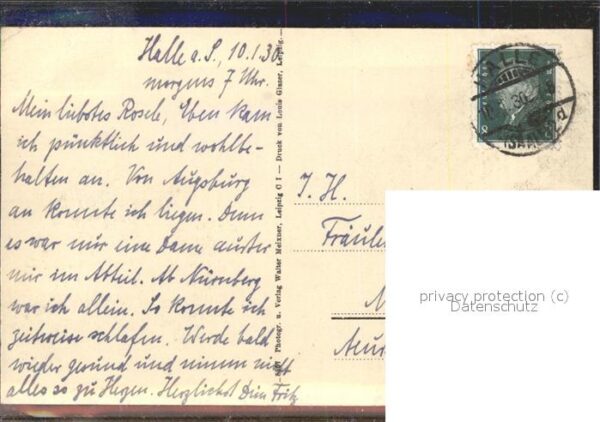 Halle a. S., 10.1.30.
morgens 7 Uhr.
Mein liebstes Rosele, Eben kam
ich pünktlich und wohlbe-
halten an. Von Augsburg
an konnte ich liegen. Denn
es war nur eine Dame ausser
mir im Abteil. Ab Nürnberg
war ich allein. So konnte ich
zeitweise schlafen. Werde bald
wieder gesund und nimm nicht
alles so zu Herzen. Herzlichst Dein Fritz
Photogr. u. Verlag Walter Meixner, Leipzig C 1 — Druck von Louis Glaser, Leipzig.
HALLE
30
(SAALE)
d
I. H.
Fräulein
privacy protection (c)
Datenschutz